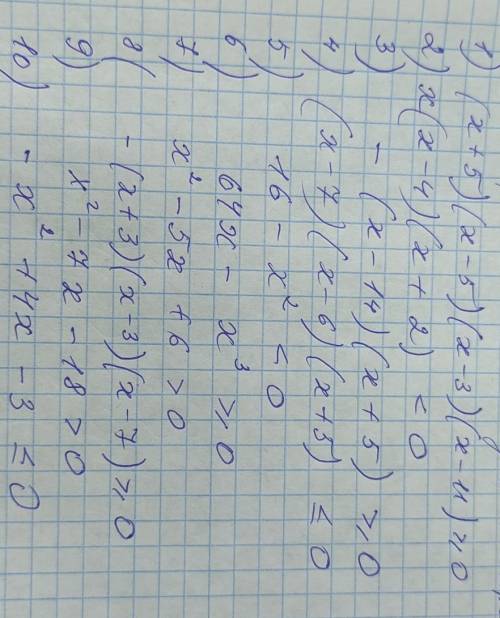 1) (x+5)(x-5)(x-3)(x-11)≥0
2) x(x-4)(x+2)<0
3) -(x-14)(x+5)≥0
4) (x-7)(x-6)(x+3)≤0
5) 16-x²≤0
6) 64x-x³≥0
7) x²-5x+6>0
8) -(x+3)(x-3)(x-7)≥0
9) x²-7x-18>0
10) -x²+4x-3≤0